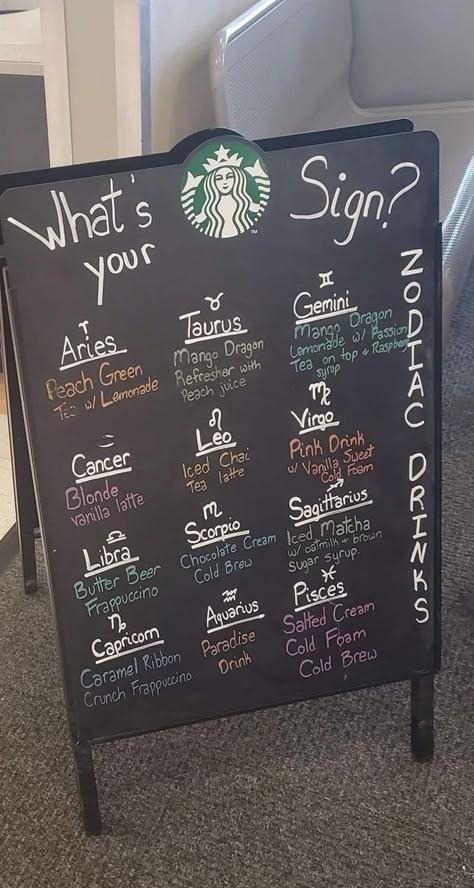 What's your Sign?
ZODIAC DRINKS
♈ Aries
Peach Green
Tea w/ Lemonade
♉ Taurus
Mango Dragon
Refresher with
Peach juice
♊ Gemini
Mango Dragon
Lemonade w/ Passion
Tea on top & Raspberry
syrup
Cancer
Blonde
vanilla latte
♌ Leo
Iced Chai
Tea latte
♍ Virgo
Pink Drink
w/ Vanilla Sweet
Cold Foam
♎ Libra
Butter Beer
Frappuccino
♏ Scorpio
Chocolate Cream
Cold Brew
♐ Sagittarius
Iced Matcha
w/ oatmilk + brown
sugar syrup.
♑ Capricorn
Caramel Ribbon
Crunch Frappuccino
♒ Aquarius
Paradise
Drink
♓ Pisces
Salted Cream
Cold Foam
Cold Brew
TM